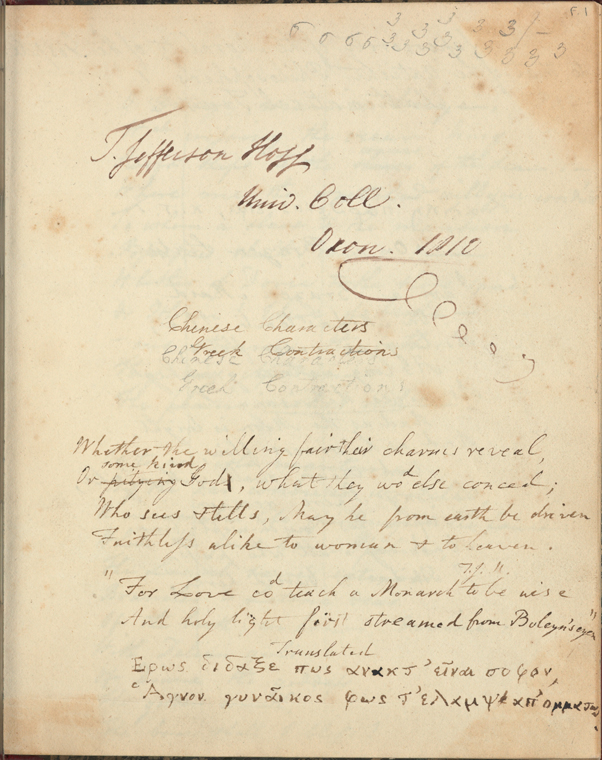 T. Jefferson Hogg
Univ. Coll.
Oxon. 1810
Chinese Characters
Greek Contractions
Chinese Characters
Greek Contractions
Whether the willing fair their charms reveal,
some kind
Or pitying God, what they wod else conceal;
Who sees & tells, May he from earth be driven
Faithless alike to woman & to heaven.
T. J. H.
"For Love cod teach a Monarch to be wise
And holy light first streamed from Boleyn's eyes"
Translated
Ερως διδαξε πως ανακτ' εἶναι σοφον,
Ἁγνον γυναῖκος φως τ' ελαμψε απ' ομματων